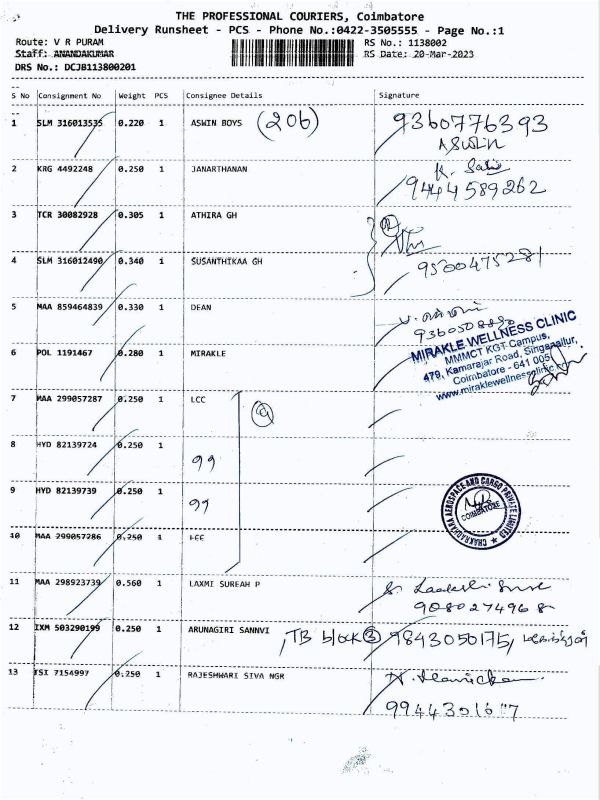 THE PROFESSIONAL COURIERS, Coimbatore
Delivery Runsheet - PCS - Phone No.:0422-3505555 - Page No.:1
Route: V R PURAM RS No.: 1138002
Staff: ANANDAKUMAR RS Date: 20-Mar-2023
DRS No.: DCJB113800201
S No Consignment No Weight PCS Consignee Details Signature
1 SLM 316013535 0.220 1 ASWIN BOYS (206) 9360776393
ASWIN
2 KRG 4492248 0.250 1 JANARTHANAN K.
9444589262
3 TCR 30082928 0.305 1 ATHIRA GH
4 SLM 316012490 0.340 1 SUSANTHIKAA GH 9500475281
5 MAA 859464839 0.330 1 DEAN
6 POL 1191467 0.280 1 MIRAKLE
MIRAKLE WELLNESS CLINIC
MMMCT KGT Campus,
479, Kamarajar Road, Singanallur,
Coimbatore - 641 005
www.miraklewellnessclinic.
7 MAA 299057287 0.250 1 LCC
8 HYD 82139724 0.250 1 99
9 HYD 82139739 0.250 1 99
CHAKRADHARA AEROSPACE AND CARGO PRIVATE LIMITED
COIMBATORE
10 MAA 299057286 0.250 1 LCC
11 MAA 298923739 0.560 1 LAXMI SUREAH P
9080274968
12 IXM 503290199 0.250 1 ARUNAGIRI SANNVI , TB block 3 9843050175,
13 TSI 7154997 0.250 1 RAJESHWARI SIVA NGR N. Manickam